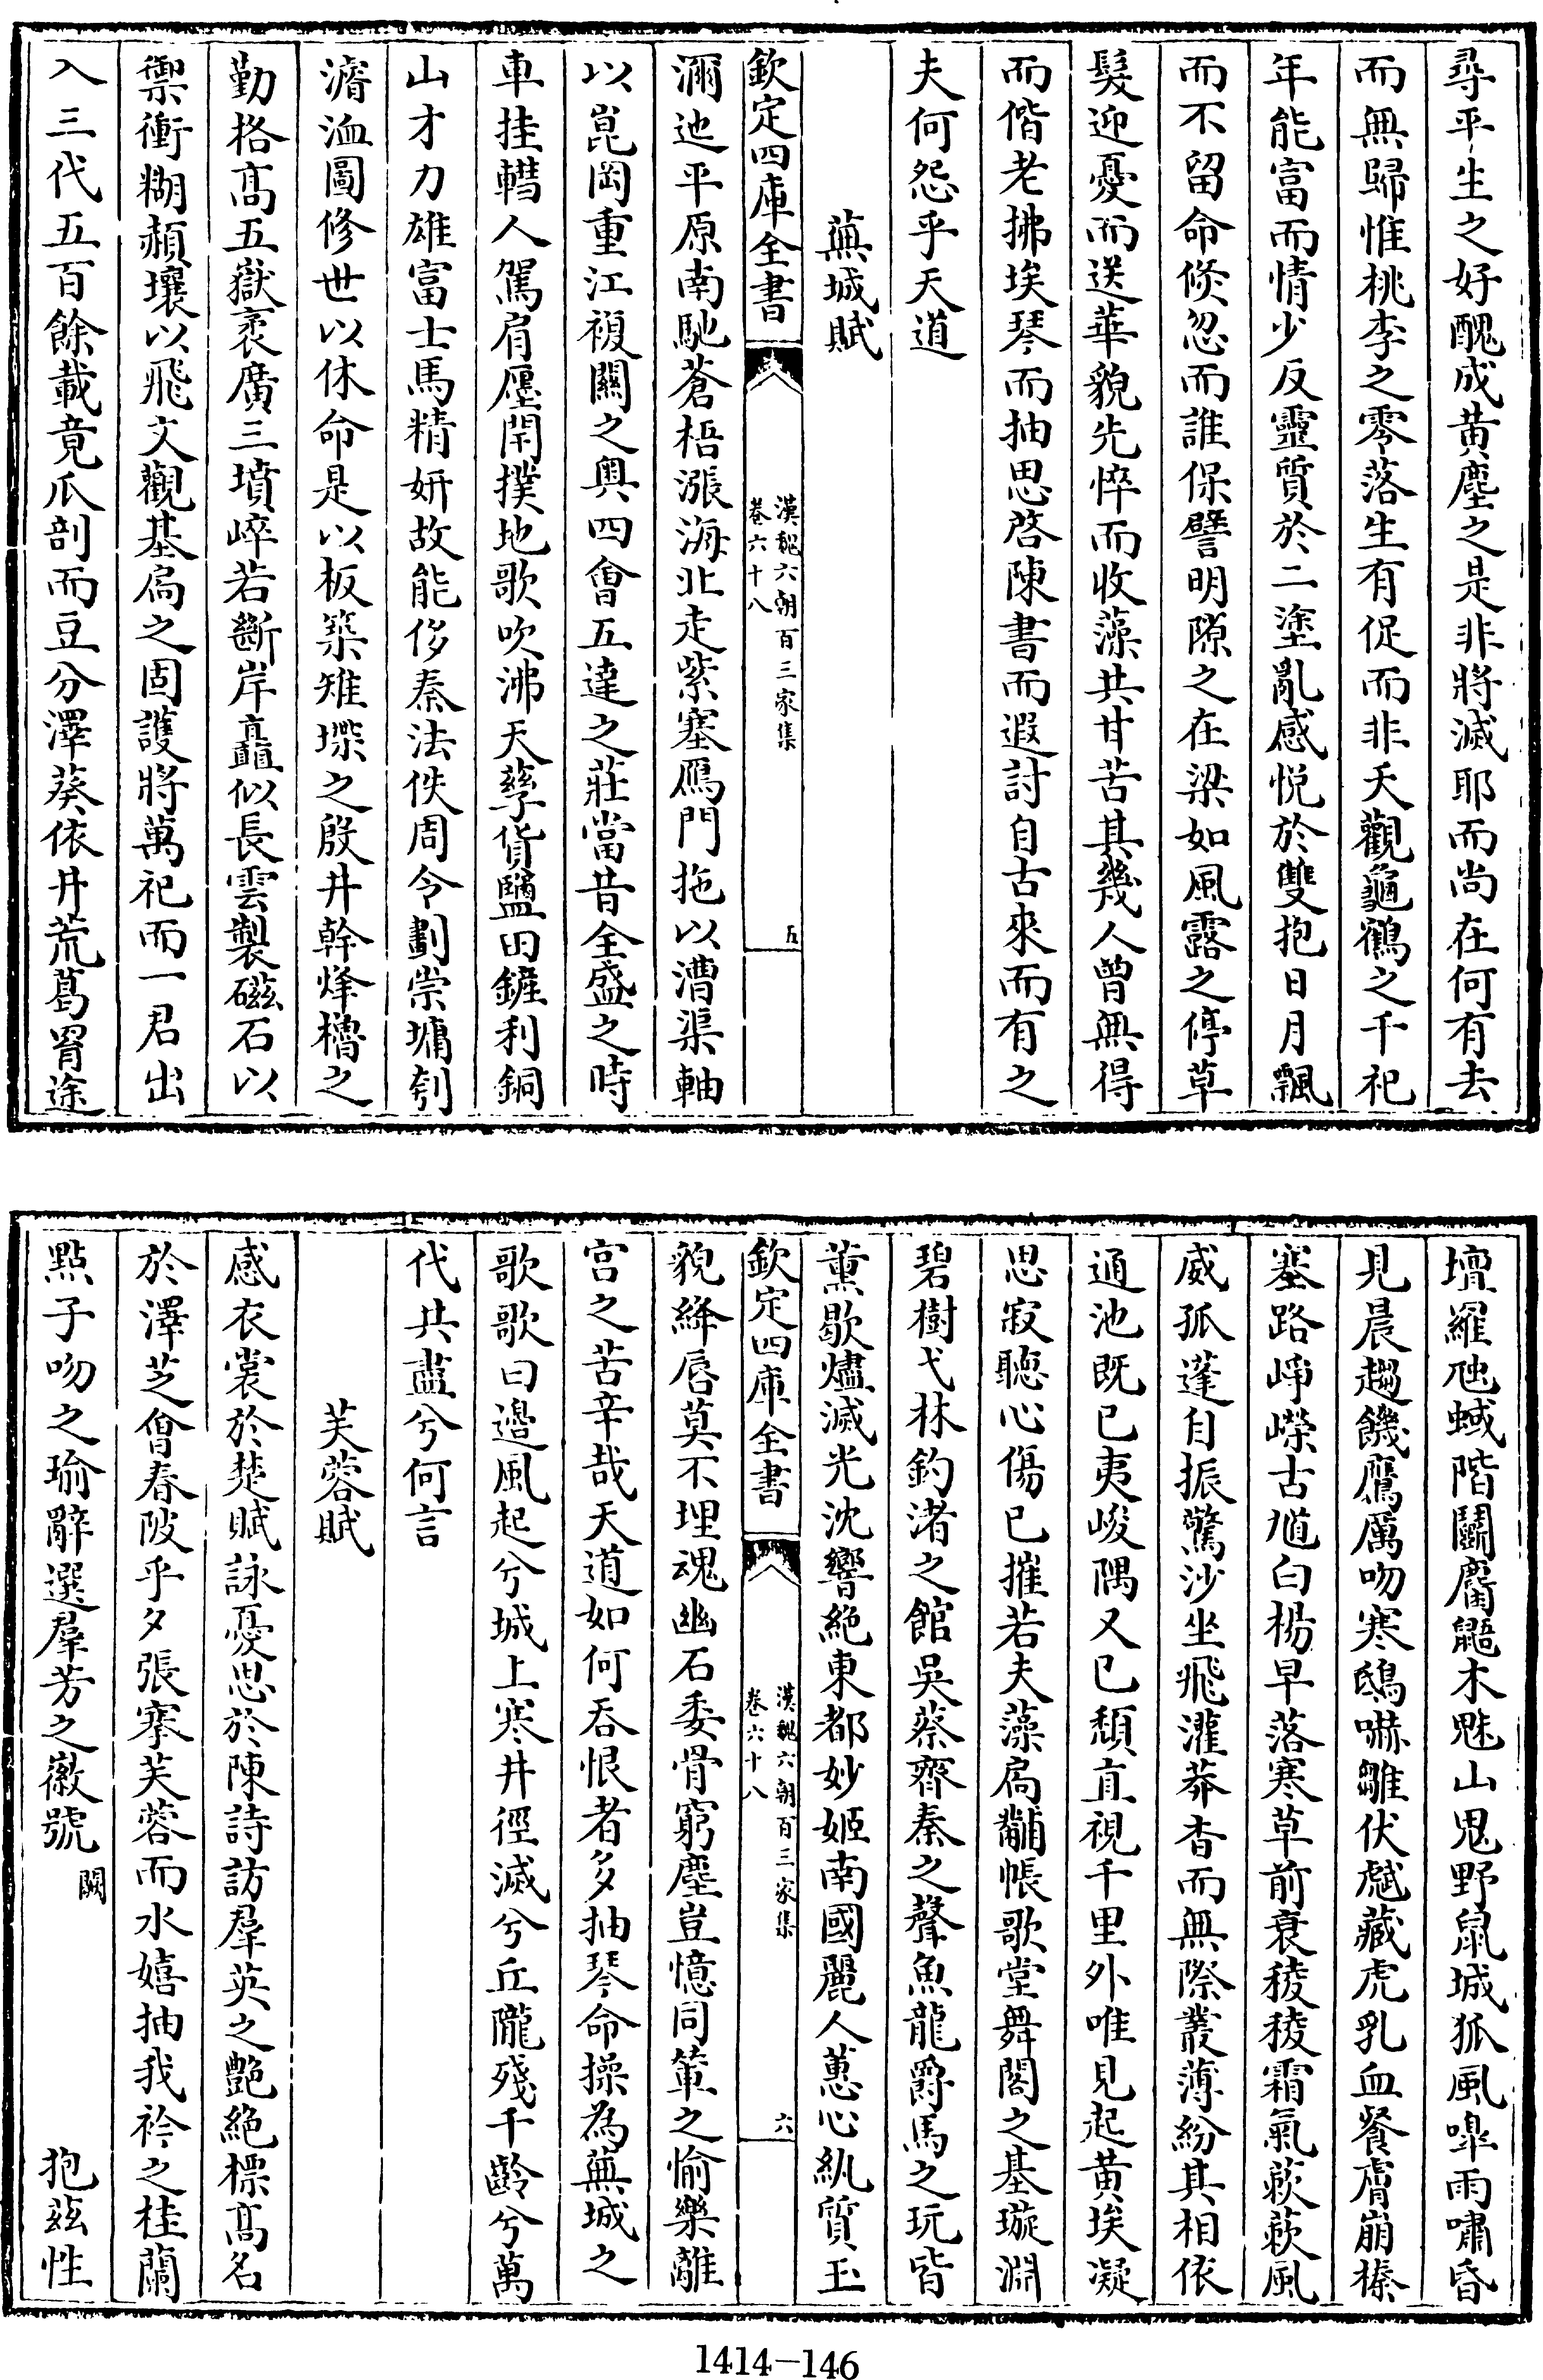 尋平生之好醜成黄塵之是非將滅耶而尚在何有去
而無歸惟桃李之零落生有促而非夭觀龜鶴之千祀
年能富而情少反靈質於二塗亂感悦於雙抱日月飄
而不留命倐忽而誰保譬明隙之在梁如風露之停草
髮迎憂而送華貌先悴而收藻共甘苦其幾人曾無得
而偕老拂埃琴而抽思啓陳書而遐討自古來而有之
夫何怨乎天道
蕪城賦
欽定四庫全書
漢魏六朝百三家集
卷六十八
五
濔迆平原南馳蒼梧漲海北走紫塞鴈門拖以漕渠軸
以崑岡重江複關之奥四會五達之莊當昔全盛之時
車挂轊人駕肩㕓閈撲地歌吹沸天孳貨鹽田鏟利銅
山才力雄富士馬精妍故能侈秦法佚周令劃崇墉刳
濬洫圖修世以休命是以板築雉堞之殷井幹烽櫓之
勤格髙五嶽袤廣三墳崪若斷岸矗似長雲製磁石以
禦衝糊頳壤以飛文觀基扃之固護將萬祀而一君出
入三代五百餘載竟瓜剖而豆分澤葵依井荒葛罥途
壇羅虺蜮階鬬麏鼯木魅山鬼野鼠城狐風嘷雨嘯昏
見晨趨饑鷹厲吻寒鴟嚇雛伏虣藏虎乳血飱膚崩榛
塞路崢嶸古馗白楊早落寒草前衰稜稜霜氣蔌蔌風
威孤蓬自振驚沙坐飛灌莽杳而無際叢薄紛其相依
通池既已夷峻隅又已頹直視千里外唯見起黄埃凝
思寂聽心傷已摧若夫藻扃黼帳歌堂舞閣之基璇淵
碧樹弋林釣渚之館吳蔡齊秦之聲魚龍爵馬之玩皆
薰歇燼滅光沈響絶東都妙姬南國麗人蕙心紈質玉
欽定四庫全書
漢魏六朝百三家集
卷六十八
六
貌絳唇莫不埋魂幽石委骨窮塵豈憶同輦之愉樂離
宫之苦辛哉天道如何吞恨者多抽琴命操為蕪城之
歌歌曰邉風起兮城上寒井徑滅兮丘隴殘千齡兮萬
代共盡兮何言
芙蓉賦
感衣裳於楚賦詠憂思於陳詩訪羣英之艶絶標髙名
於澤芝會春陂乎夕張搴芙蓉而水嬉抽我衿之桂蘭
點子吻之瑜辭選羣芳之徽號闕 抱茲性
1414-146